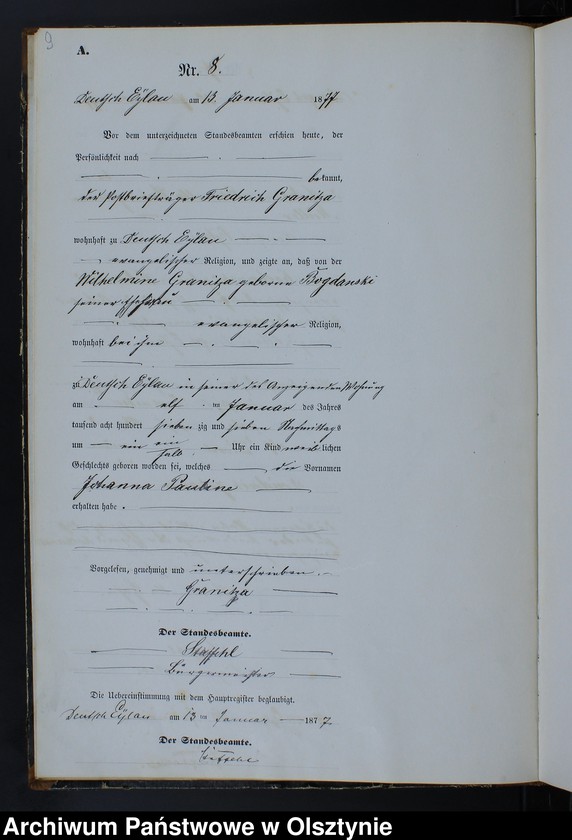 9
A.
Nr. 8.
Deutsch Eylau am 13. Januar 1877
Vor dem unterzeichneten Standesbeamten erschien heute, der
Persönlichkeit nach
bekannt,
der Postbriefträger Friedrich Granitza
wohnhaft zu Deutsch Eylau
evangelischer Religion, und zeigte an, daß von der
Wilhelmine Granitza geborne Bogdanski
seiner Ehefrau
evangelischer Religion,
wohnhaft bei ihm
zu Deutsch Eylau in seiner des Anzeigenden Wohnung
am elf ten Januar des Jahres
tausend acht hundert sieben zig und sieben Nachmittags
um ein ein halb Uhr ein Kind weiblichen
Geschlechts geboren worden sei, welches die Vornamen
Johanna Pauline
erhalten habe.
Vorgelesen, genehmigt und unterschrieben.
Granitza
Der Standesbeamte.
Bürgermeister
Die Uebereinstimmung mit dem Hauptregister beglaubigt.
Deutsch Eylau am 13 ten Januar 1877
Der Standesbeamte.
Archiwum Państwowe w Olsztynie